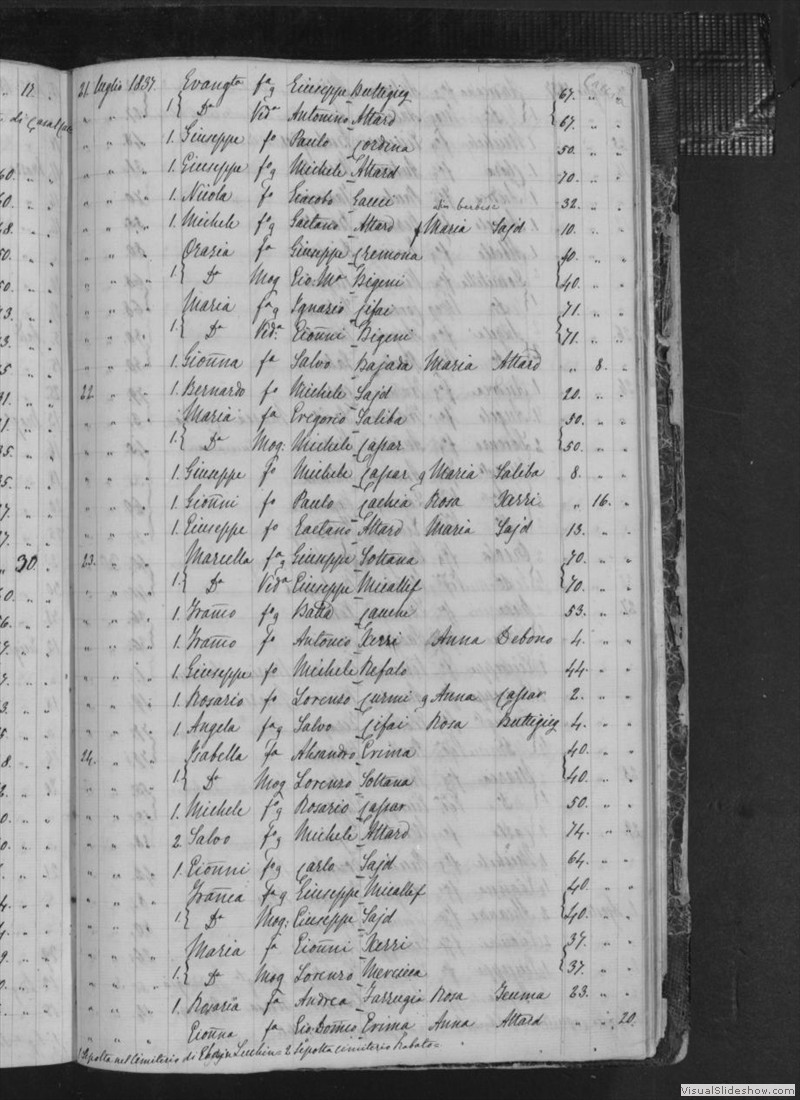 21 luglio 1837 Evangta fa g Giuseppe Buttigieg 67. „ „
„ „ „ 1{ Da Vida Antonino Attard {67. „ „
„ „ „ 1. Giuseppe fo Paulo Cordina 50. „ „
„ „ „ 1. Giuseppe fo g Michele Attard 70. „ „
„ „ „ 1. Nicola fo Giacobo Gauci 32. „ „
„ „ „ 1. Michele fo g Gaetano Attard f Maria Sajd 10. „ „
„ „ „ Grazia fa Giuseppe Cremona 40. „ „
„ „ „ 1{ Da Mog Gio. Ma Bigeni {40. „ „
„ „ „ Maria fa g Ignazio Cifai 71. „ „
„ „ „ 1{ Da Vida Gionni Bigeni {71. „ „
„ „ „ 1. Gionna fa Salvo Bajada Maria Attard „ 8. „
22. „ „ 1. Bernardo fo Michele Sajd 20. „ „
„ „ „ Maria fa Gregorio Saliba 50. „ „
„ „ „ 1{ Da Mog: Michele Caspar {50. „ „
„ „ „ 1. Giuseppe fo Michele Caspar g Maria Saliba 8. „ „
„ „ „ 1. Gionni fo Paulo Cachia Rosa Xerri „ 16. „
„ „ „ 1. Giuseppe fo Gaetano Attard Maria Sajd 13. „ „
23. „ „ Marcella fa g Giuseppe Soltana 70. „ „
„ „ „ 1{ Da Vida Giuseppe Micallef {70. „ „
„ „ „ 1. Franco fo g Batta Gauci 53. „ „
„ „ „ 1. Franco fo Antonio Xerri Anna Debono 4. „ „
„ „ „ 1. Giuseppe fo Michele Refalo 44. „ „
„ „ „ 1. Rosario fo Lorenzo Curmi g Anna Caspar 2. „ „
„ „ „ 1. Angela fa g Salvo Cifai Rosa Buttigieg 4. „ „
24. „ „ Isabella fa Alesandro Grima 40. „ „
„ „ „ 1{ Da Mog Lorenzo Soltana {40. „ „
„ „ „ 1. Michele fo g Rosario Caspar 50. „ „
„ „ „ 2. Salvo fo g Michele Attard 74. „ „
„ „ „ 1. Gionni fo g Carlo Sajd 64. „ „
„ „ „ Franca fa g Giuseppe Micallef 40. „ „
„ „ „ 1{ Da Mog: Giuseppe Sajd {40. „ „
„ „ „ Maria fa Gionni Xerri 37. „ „
„ „ „ 1{ Da Mog Lorenzo Mercieca {37. „ „
„ „ „ 1. Rosaria fa Andrea Farrugia Rosa Teuma 23. „ „
„ „ „ Gionna fa Gio. Domco Grima Anna Attard „ „ 20.
1 Sepolta nel Cimiterio di = 2 Sepolta cimiterio Rabato =
VisualSlideshow.com